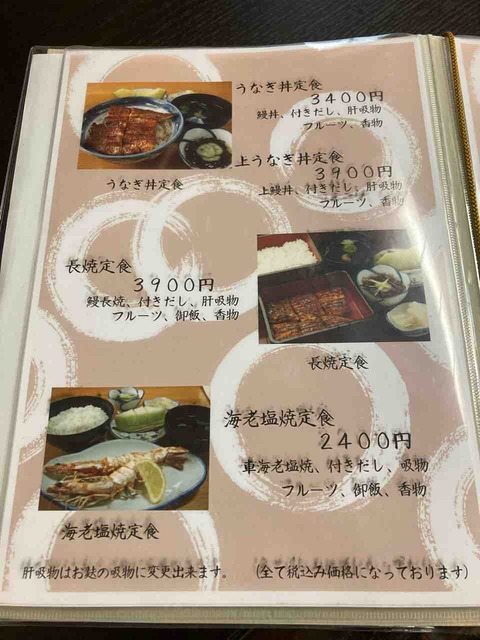 うなぎ丼定食
3400円
鰻丼、付きだし、肝吸物
フルーツ、香物
うなぎ丼定食
上うなぎ丼定食
3900円
上鰻丼、付きだし、肝吸物
フルーツ、香物
長焼定食
3900円
鰻長焼、付きだし、肝吸物
フルーツ、御飯、香物
長焼定食
海老塩焼定食
2400円
車海老塩焼、付きだし、吸物
フルーツ、御飯、香物
海老塩焼定食
肝吸物はお麩の吸物に変更出来ます。 (全て税込み価格になっております)